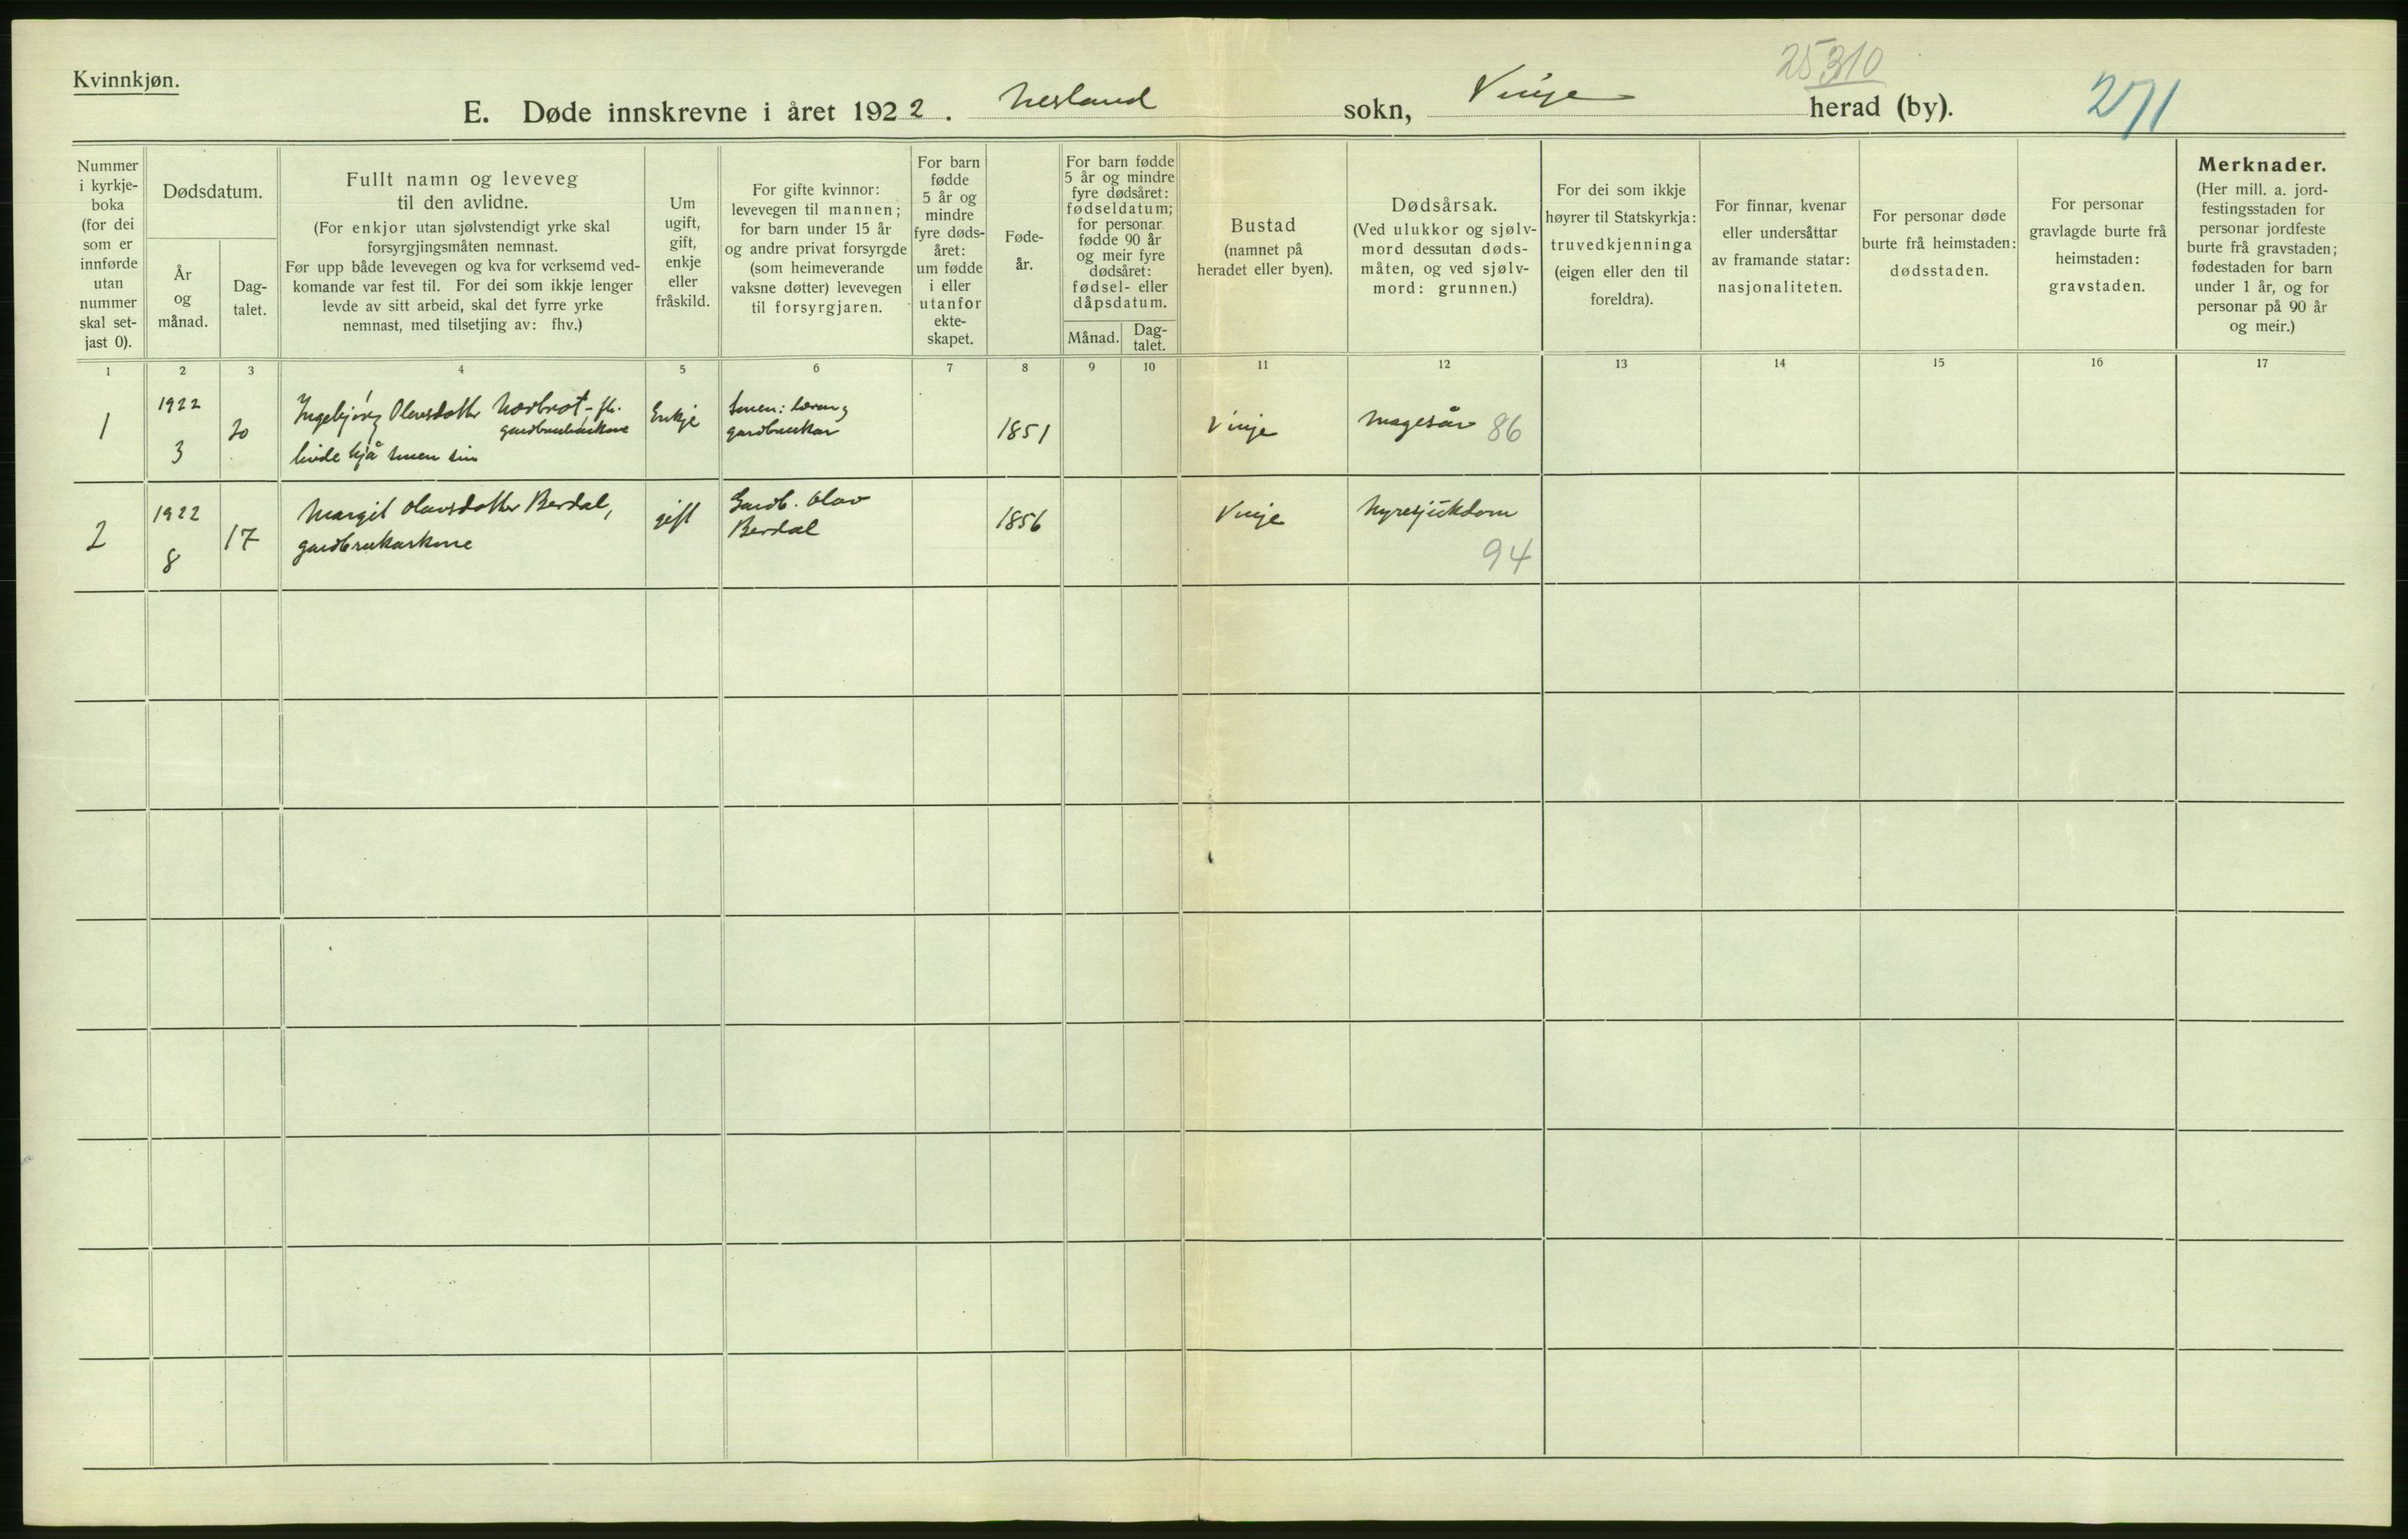 Kvinnkjøn.
25310
271
E. Døde innskrevne i året 1922. Nesland sokn, Vinje herad (by).
Nummer
i kyrkje-
boka
(for dei
som er
innførde
utan
nummer
skal set-
jast 0).
Dødsdatum.
År
og
månad.
Dag-
talet.
Fullt namn og leveveg
til den avlidne.
(For enkjor utan sjølvstendigt yrke skal
forsyrgjingsmåten nemnast.
Før upp både levevegen og kva for verksemd ved-
komande var fest til. For dei som ikkje lenger
levde av sitt arbeid, skal det fyrre yrke
nemnast, med tilsetjing av: fhv.)
Um
ugift,
gift,
enkje
eller
fråskild.
For gifte kvinnor:
levevegen til mannen;
for barn under 15 år
og andre privat forsyrgde
(som heimeverande
vaksne døtter) levevegen
til forsyrgjaren.
For barn
fødde
5 år og
mindre
fyre døds-
året:
um fødde
i eller
utanfor
ekte-
skapet.
Føde-
år.
For barn fødde
5 år og mindre
fyre dødsåret:
fødseldatum;
for personar
fødde 90 år
og meir fyre
dødsåret:
fødsel- eller
dåpsdatum.
Månad.
Dag-
talet.
Bustad
(namnet på
heradet eller byen).
Dødsårsak.
(Ved ulukkor og sjølv-
mord dessutan døds-
måten, og ved sjølv-
mord: grunnen.)
For dei som ikkje
høyrer til Statskyrkja:
truvedkjenninga
(eigen eller den til
foreldra).
For finnar, kvenar
eller undersåttar
av framande statar:
nasjonaliteten.
For personar døde
burte frå heimstaden:
dødsstaden.
For personar
gravlagde burte frå
heimstaden:
gravstaden.
Merknader.
(Her mill. a. jord-
festingsstaden for
personar jordfeste
burte frå gravstaden;
fødestaden for barn
under 1 år, og for
personar på 90 år
og meir.)
1 2 3 4 5 6 7 8 9 10 11 12 13 14 15 16 17
1
1922
3
20
Ingebjörg Olavsdotter
gardbrukarkone
livde hjå sonen sin
Enkje
sonen:
gardbrukar
1851
Vinje
Magesår 86
2
1922
8
17
Margit Olavsdotter Berdal,
gardbrukarkone
gift
Gardb. Olav
Berdal
1856
Vinje
Nyresjukdom
94